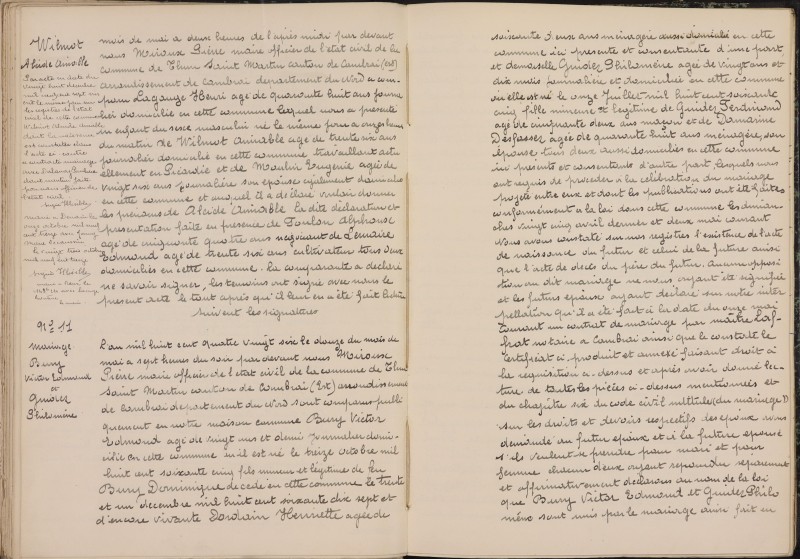 Wilmot
Alcide Aimable
mois de mai a deux heures de l'après midi par devant
nous Miroux Pière maire officier de l'état civil de la
commune de Thun Saint Martin canton de Cambrai (est)
arrondissement de Cambrai departement du Nord a com-
paru Lagauge Henri age de quarante huit ans journa
lier domicilié en cette commune lequel nous a présenté
un enfant du sexe masculin né le même jour a onze heures
du matin de Wilmot Aimable age de trente six ans
journalier domicilié en cette commune travaillant actu
ellement en Picardie et de Moulin Eugenie agée de
vingt six ans journalière son epouse egalement domiciliée
en cette commune et auquel il a déclaré vouloir donner
les prenoms de Alcide Aimable la dite déclaration et
presentation faite en presence de Toulon Alphonse
age de cinquante quatre ans negociant de Lemaire
Edmond age de trente six ans cultivateur tous deux
domiciliés en cette commune. La comparante a déclaré
ne savoir signer, les temoins ont signé avec nous le
present acte le tout après qu'il leur en a été fait lecture
Suivent les signatures
N° 11
Mariage
Bury
Victor Edmond
et
Guidez
Philomène
L'an mil huit cent quatre vingt six le douze du mois de
mai a sept heures du soir par devant nous Mirousse
Pière maire officier de l'état civil de la commune de Thun
Saint Martin canton de Cambrai (Est) arrondissement
de Cambrai departement du Nord sont comparus publi
quement en notre maison commune Bury Victor
Edmond age de vingt ans et demi journalier domi-
cilié en cette commune ou il est né le treize octobre mil
huit cent soixante cinq fils mineur et légitime de feu
Bury Dominique decede en cette commune le trente
et un decembre mil huit cent soixante dix sept et
d'encore vivante Lordain Henriette agée de
soixante deux ans menagère aussi domiciliée en cette
commune ici presente et consentante d'une part
et demoiselle Guidez Philomène agée de vingt ans et
dix mois journalière et domiciliée en cette commune
ou elle est né le onze Juillet mil huit cent soixante
cinq fille mineure et legitime de Guidez Ferdinand
age de cinquante deux ans maçon et de Damarine
Desfossez agée de quarante huit ans menagère, son
épouse tous deux aussi domiciliés en cette commune
ici presents et consentants d'autre part, lesquels nous
ont requis de proceder a la celebration du mariage
projeté entre eux et dont les publications ont été faites
conformement a la loi dans cette commune les diman
ches vingt cinq avril dernier et deux mai courant
Nous avons constaté sur nos registres l'existence de l'acte
de naissance du futur et celui de la future ainsi
que l'acte de décès du père du futur. Aucune opposi
tion au dit mariage ne nous ayant été signifié
et les futurs epoux ayant declaré sur notre inter
pellation qu'il a été fait a la date du onze mai
courant un contrat de mariage par maître Laf-
frat notaire a Cambrai ainsi que le constate le
certificat ci produit et annexé faisant droit a
la requisition ci-dessus et après avoir donné lec-
ture de toutes les pièces ci-dessus mentionnées et
du chapitre six du code civil intitulé (du mariage)
sur les droits et devoirs respectifs des epoux avons
demandé au futur epoux et a la future epouse
s'ils veulent se prendre pour mari et pour
femme chacun d'eux ayant repondu separement
et affirmativement declarons au nom de la loi
que Bury Victor Edmond et Guidez Philo
mène sont unis par le mariage ainsi fait en